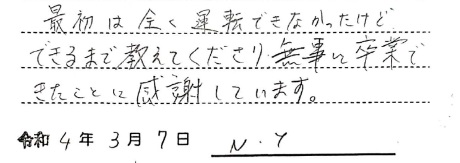 最初は全く運転できなかったけど
できるまで教えてくださり無事に卒業で
きたことに感謝しています。
令和4年3月7日 N.Y